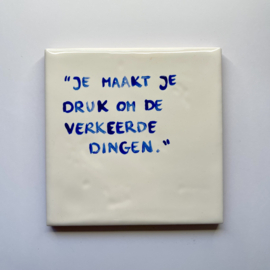 "JE MAAKT JE
DRUK OM DE
VERKEERDE
DINGEN."